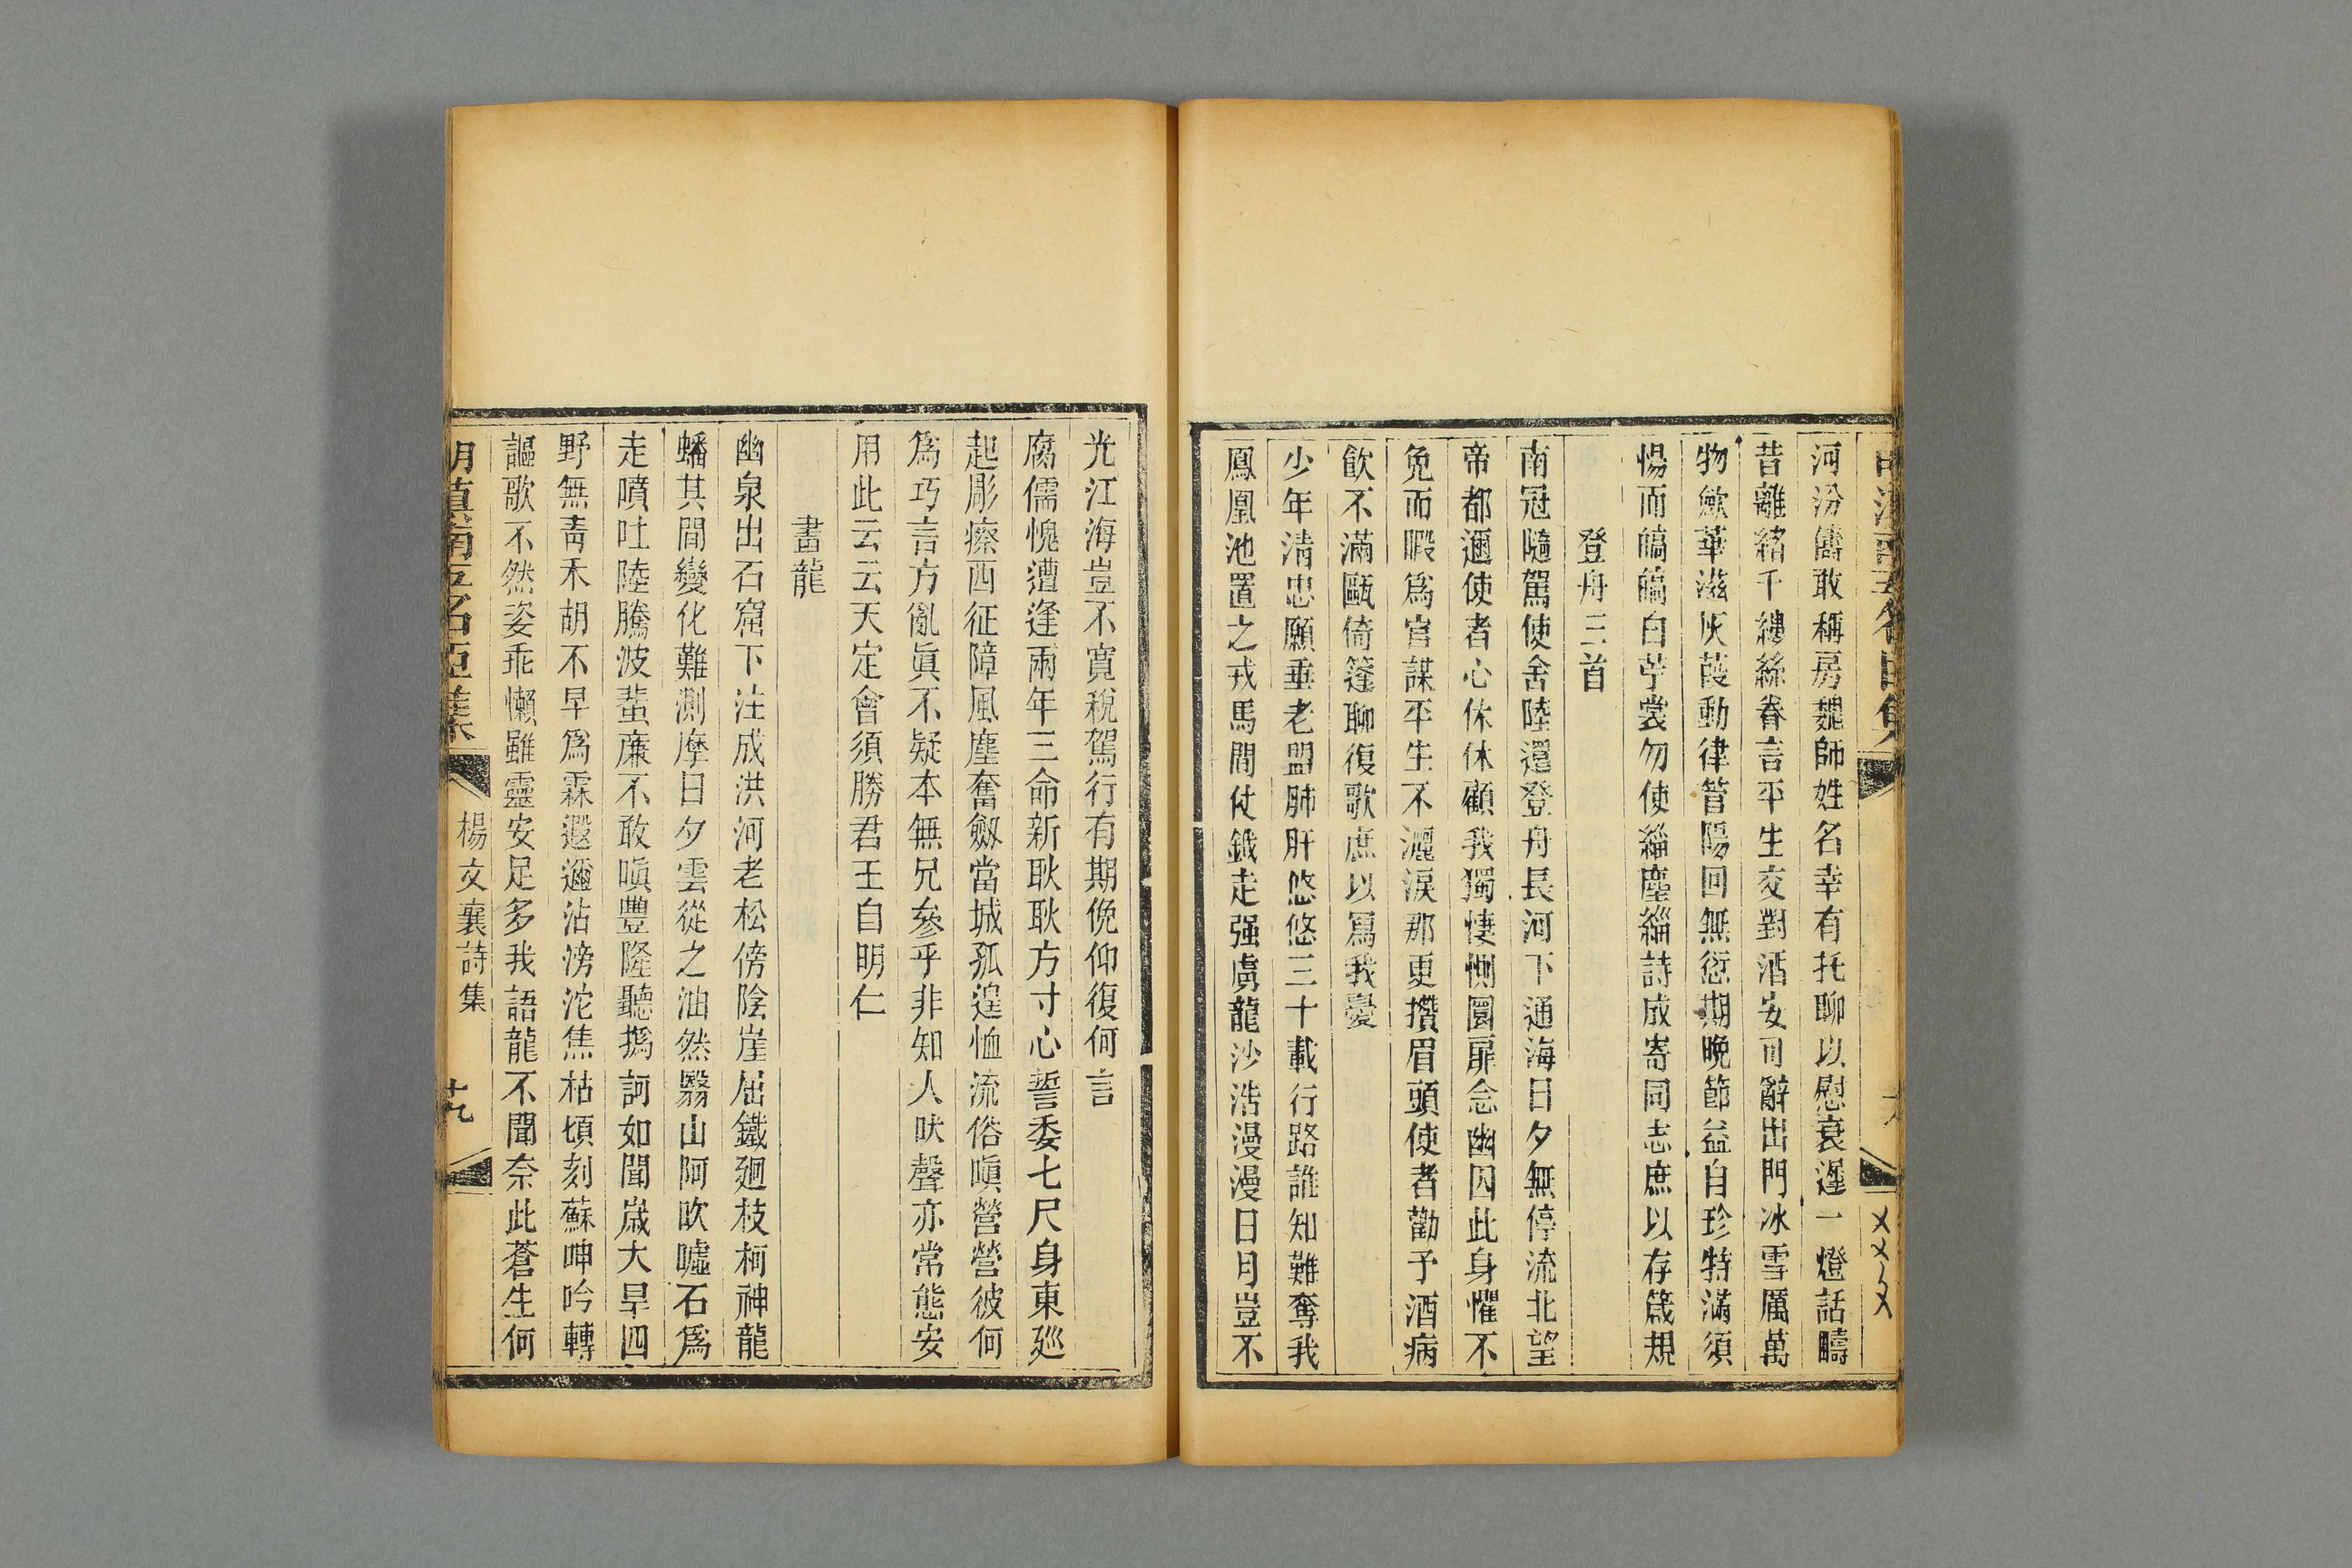 河汾儔敢稱房魏師姓名幸有托聊以慰衰遲一燈話疇
昔離緒千縷絲眷言平生交對酒安可辭出門冰雪厲萬
物歛華滋灰葭動律管陽回無愆期晚節益自珍特滿須
惕而皜皜白苧裳勿使緇塵緇詩成寄同志庶以存箴規
登舟三首
南冠隨駕使舍陸還登舟長河下通海日夕無停流北望
帝都邇使者心休休顧我獨悽惻圜扉念幽囚此身懼不
免而暇爲官謀平生不灑淚那更攢眉頭使者勸予酒病
飲不滿甌倚篷聊復歌庶以寫我憂
少年淸忠願垂老盟肺肝悠悠三十載行路誰知難奪我
鳳凰池置之戎馬間仗鉞走强虜龍沙浩漫漫日月豈不
光江海豈不寬稅駕行有期俛仰復何言
腐儒愧遭逢兩年三命新耿耿方寸心誓委七尺身東廵
起彫瘵西征障風塵奮劔當城孤遑恤流俗嗔營營彼何
爲巧言方亂眞不疑本無兄參乎非知人吠聲亦常態安
用此云云天定會須勝君王自明仁
畫龍
幽泉出石窟下注成洪河老松傍陰崖屈鐵廻枝柯神龍
蟠其間變化難測摩日夕雲從之油然翳山阿吹噓石爲
走噴吐陸騰波蜚廉不敢嗔豐隆聽撝訶如聞歲大旱四
野無靑禾胡不早爲霖遐邇沾滂沱焦枯頃刻蘇呻吟轉
謳歌不然姿乖懶雖靈安足多我語龍不聞奈此蒼生何
楊文襄詩集
十九